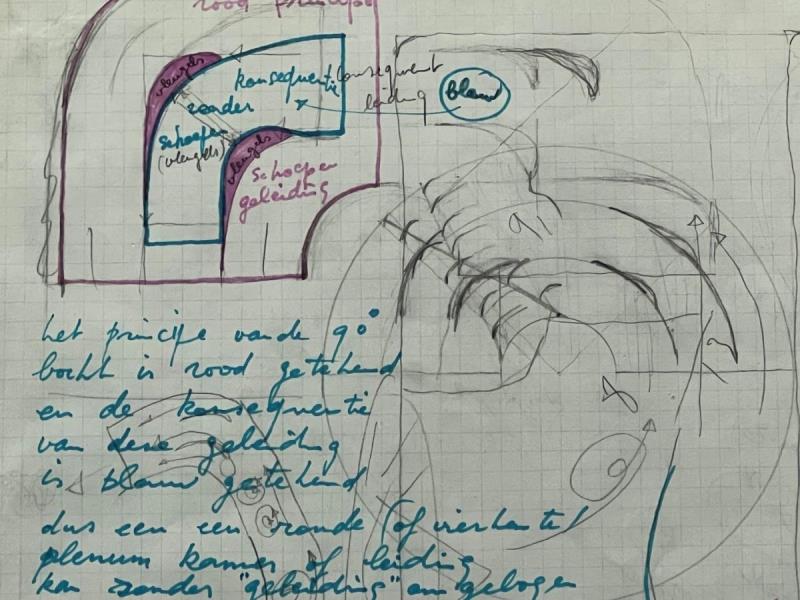 rood principe
vleugels
konsequentie
zonder
schoepen
(vleugels)
vleugels
schoepen
geleiding
konsequent
leiding
blauw
het principe van de 90°
bocht is rood getekend
en de konsequentie
van deze geleiding
is blauw getekend
dus een een ronde (of vierkante)
plenum kamer of leiding
kan zonder "geleiding" omgebogen